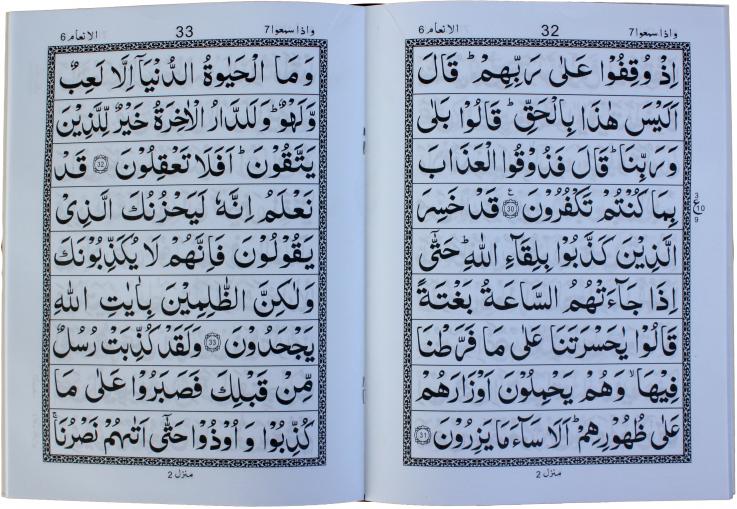 واذا سمعوا 7 32 الانعام 6
اِذْ وُقِفُوْا عَلٰى رَبِّهِمْ ؕ قَالَ
اَلَيْسَ هٰذَا بِالْحَقِّ ؕ قَالُوْا بَلٰى
وَرَبِّنَا ؕ قَالَ فَذُوْقُوا الْعَذَابَ
بِمَا كُنْتُمْ تَكْفُرُوْنَ ۧ 30 قَدْ خَسِرَ
3 ع 10 9
الَّذِيْنَ كَذَّبُوْا بِلِقَآءِ اللّٰهِ ؕ حَتّٰى
اِذَا جَآءَتْهُمُ السَّاعَةُ بَغْتَةً
قَالُوْا يٰحَسْرَتَنَا عَلٰى مَا فَرَّطْنَا
فِيْهَا ۙ وَهُمْ يَحْمِلُوْنَ اَوْزَارَهُمْ
عَلٰى ظُهُوْرِهِمْ ؕ اَلَا سَآءَ مَا يَزِرُوْنَ 31
منزل 2
واذا سمعوا 7 33 الانعام 6
وَمَا الْحَيٰوةُ الدُّنْيَاۤ اِلَّا لَعِبٌ
وَّلَهْوٌ ؕ وَلَلدَّارُ الْاٰخِرَةُ خَيْرٌ لِّلَّذِيْنَ
يَتَّقُوْنَ ؕ اَفَلَا تَعْقِلُوْنَ 32 قَدْ
نَعْلَمُ اِنَّهٗ لَيَحْزُنُكَ الَّذِىْ
يَقُوْلُوْنَ فَاِنَّهُمْ لَا يُكَذِّبُوْنَكَ
وَلٰكِنَّ الظّٰلِمِيْنَ بِاٰيٰتِ اللّٰهِ
يَجْحَدُوْنَ 33 وَلَقَدْ كُذِّبَتْ رُسُلٌ
مِّنْ قَبْلِكَ فَصَبَرُوْا عَلٰى مَا
كُذِّبُوْا وَاُوْذُوْا حَتّٰٓى اَتٰىهُمْ نَصْرُنَا ۚ
منزل 2